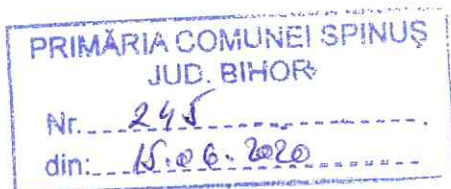 PRIMĂRIA COMUNEI SPINUŞ
JUD. BIHOR
Nr. 245
din: 15.06.2020